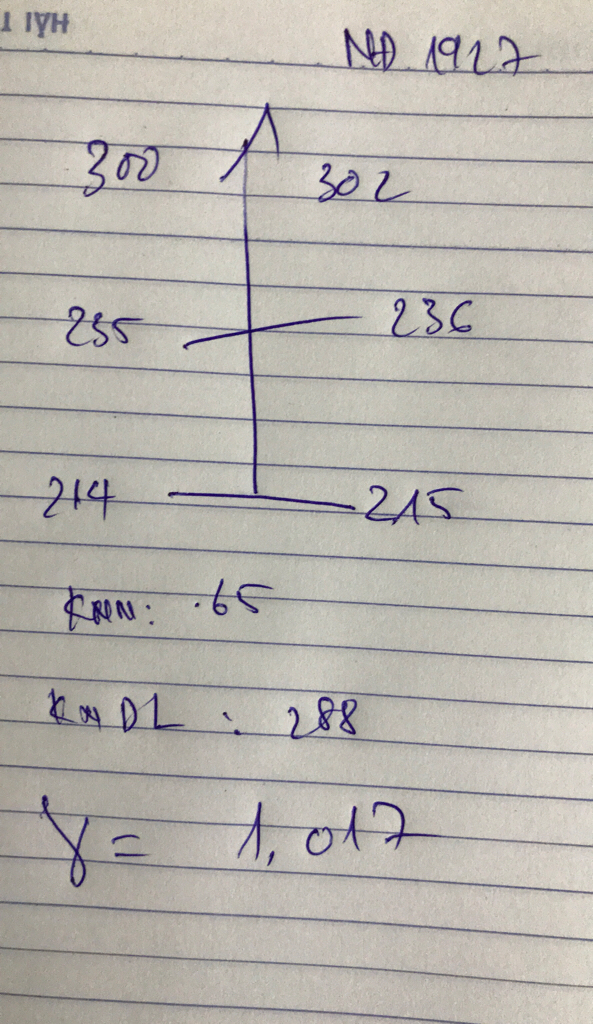 HẢI T
NĐ 1927
300 302
235 236
214 215
KNN: .65
KNDL : 288
γ = 1,017